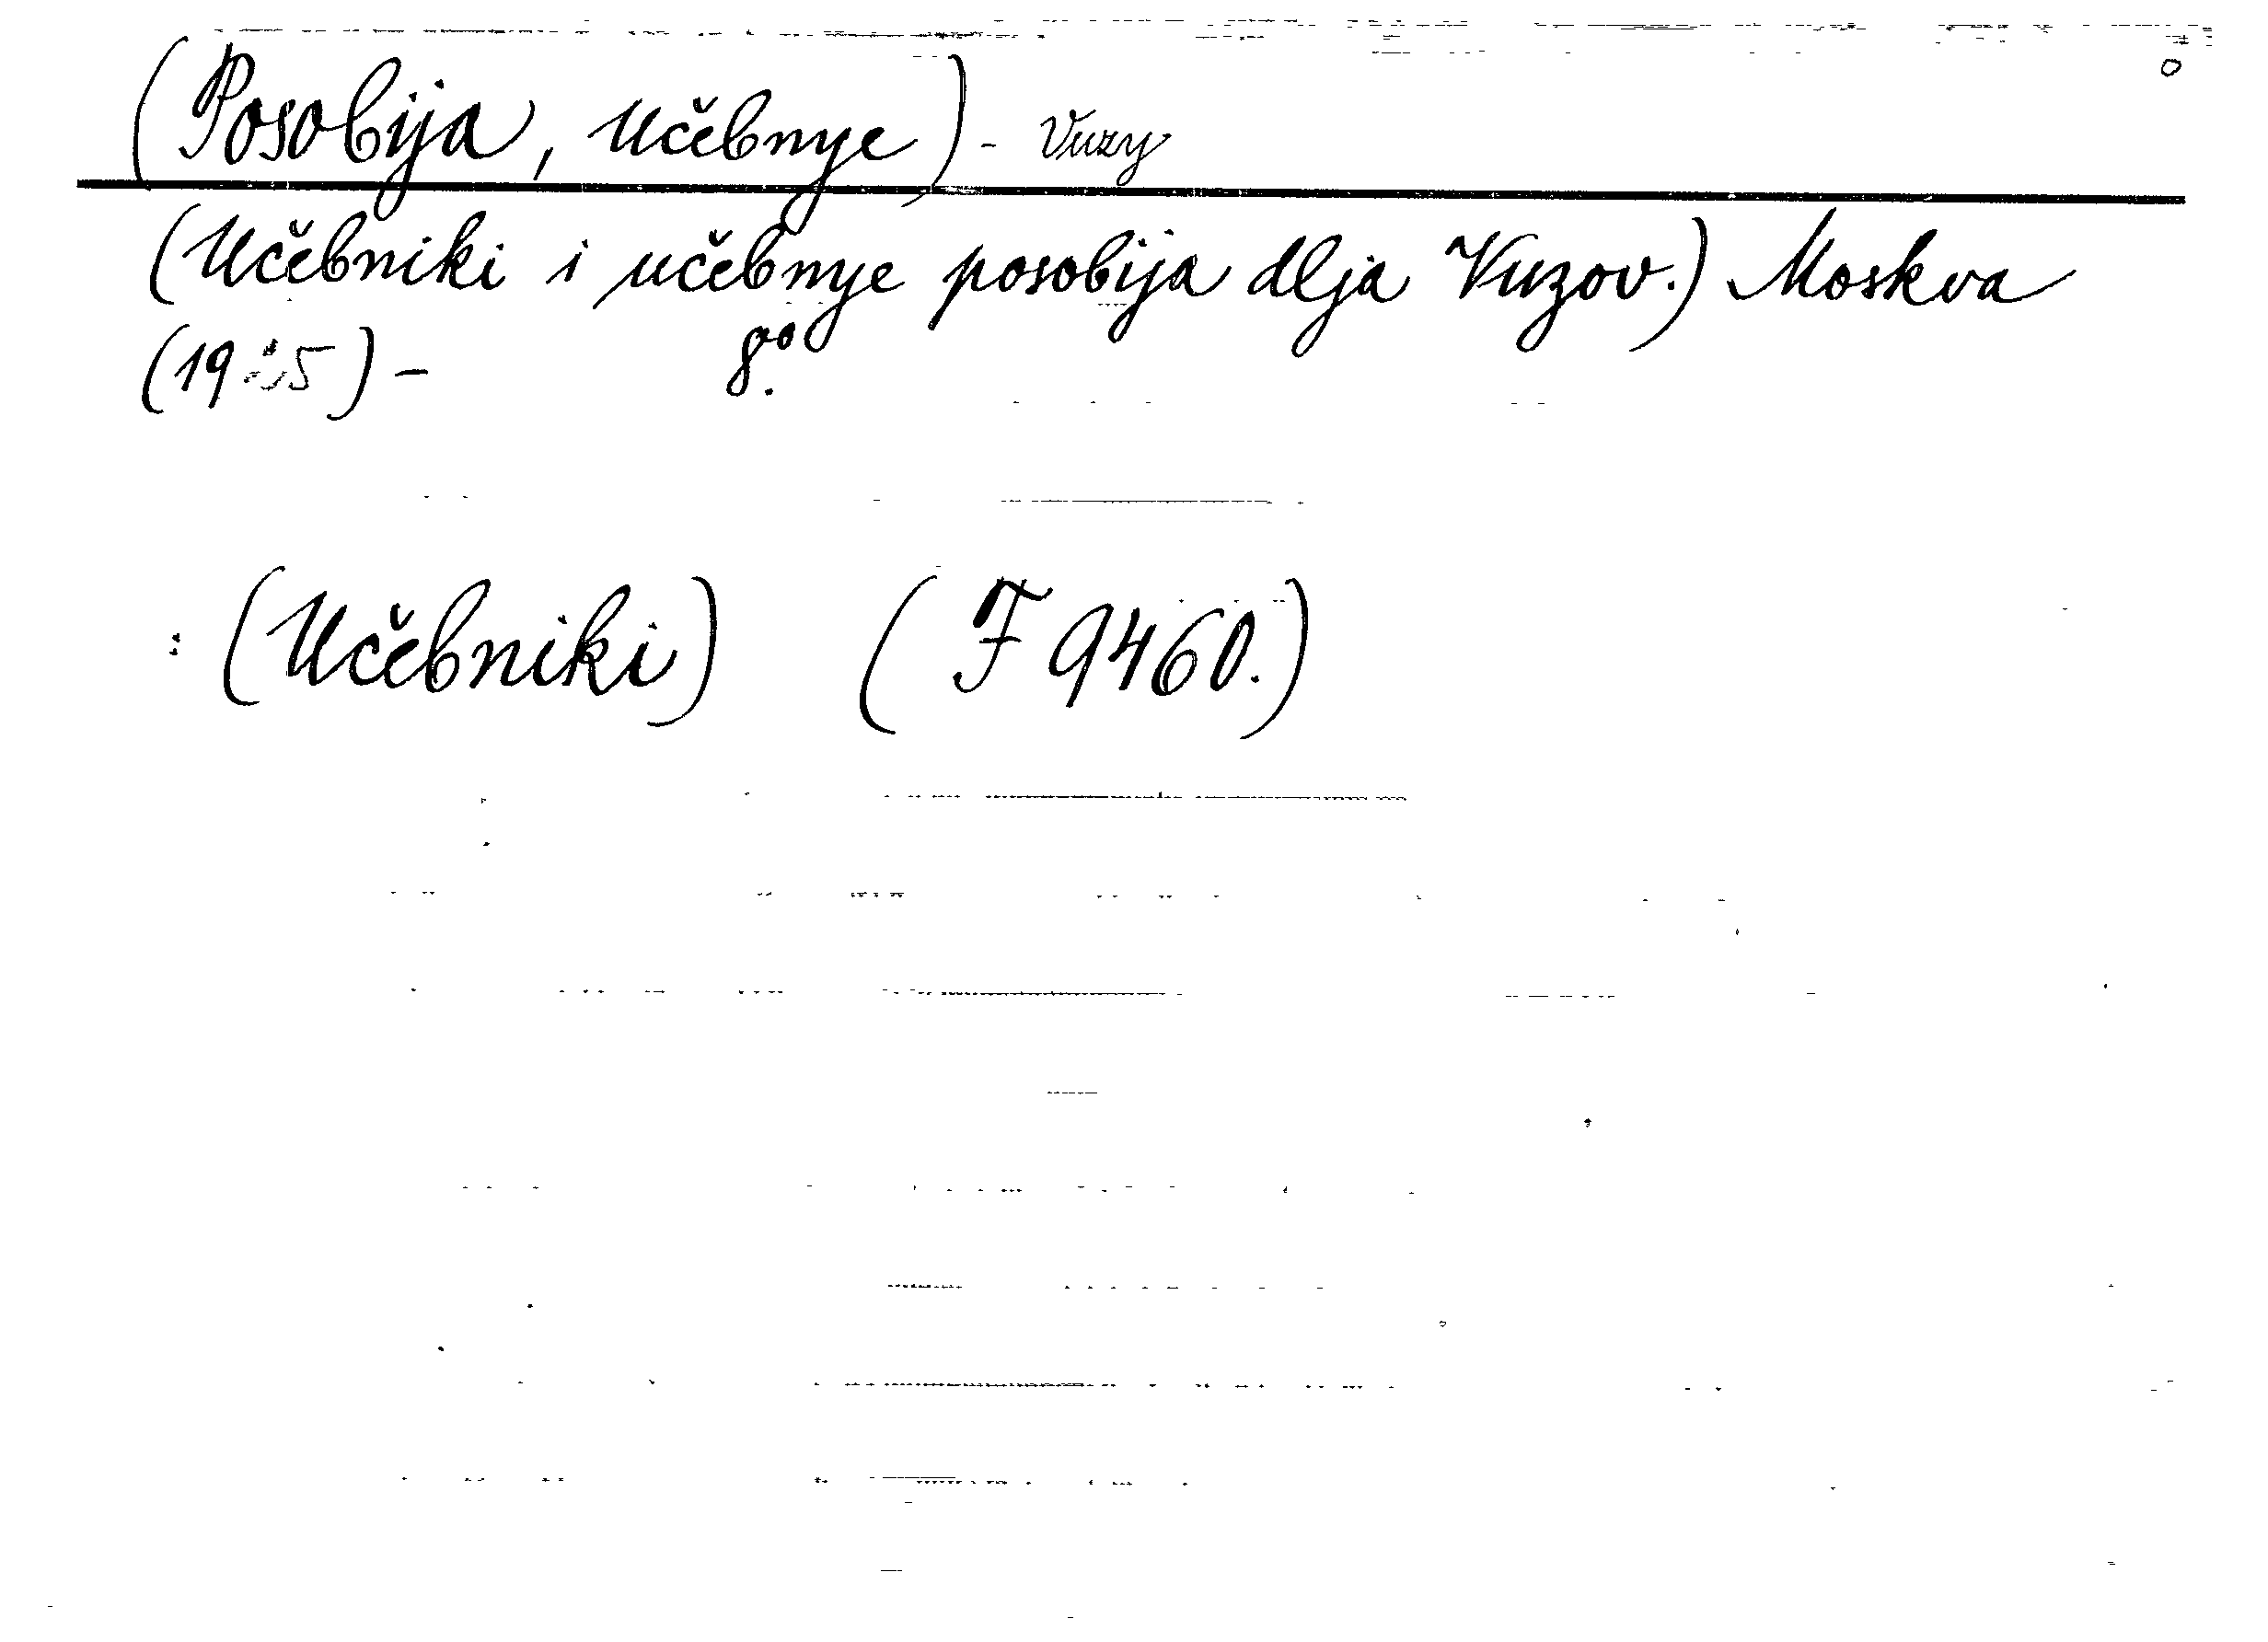 (Posobija, učebnye) - Vuzy
(Učebniki i učebnye posobija dlja Vuzov.) Moskva
8°.
: (Učebniki) (F 9460.)